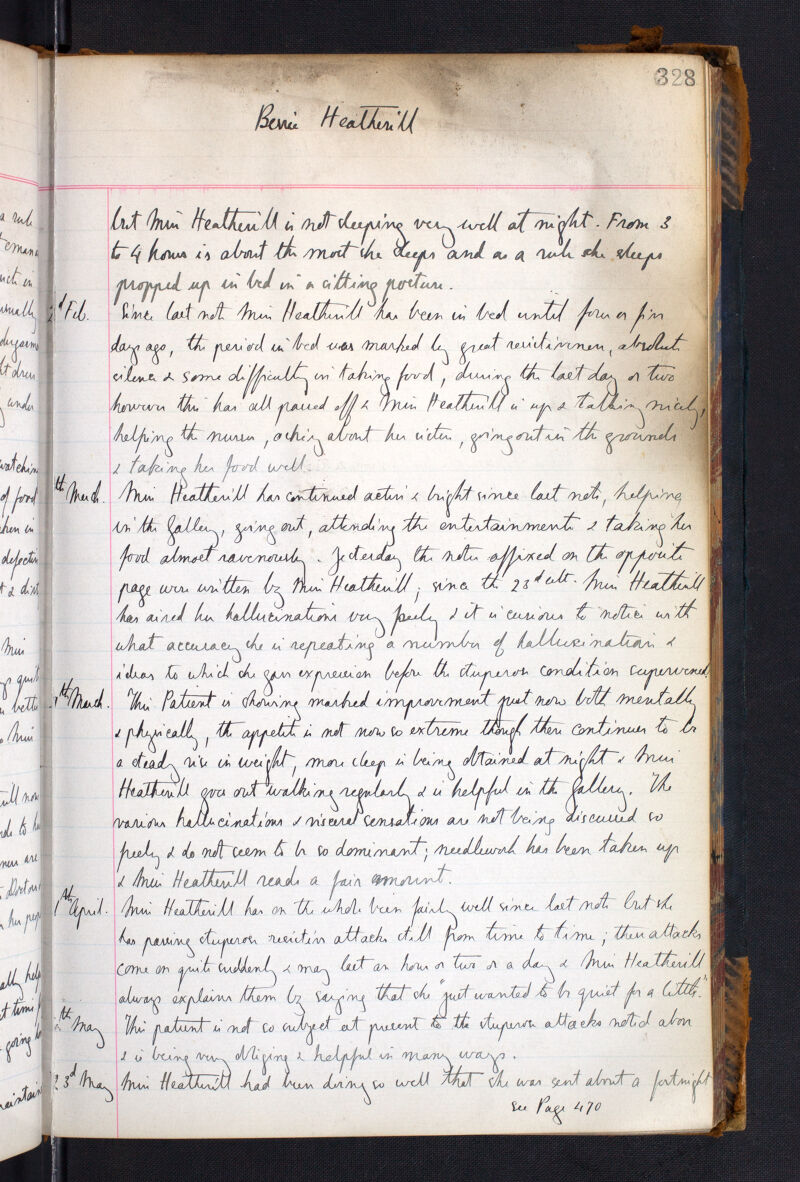 328
Heatherill
but Miss Heatherill is not sleeping very well at night. From 3
to 4 hours is about the most she sleeps and as a rule she sleeps
propped up in bed in a sitting posture.
d Feb. Since last note Miss Heatherill has been in bed until four or five
days ago, the period in bed was marked by great resistiveness, absolute
silence & some difficulty in taking food, during the last day or two
however this has all passed off & Miss Heatherill is up & talking nicely,
helping the nurses, asking about her sister, going out in the grounds
& taking her food well.
th March. Miss Heatherill has continued active & bright since last note, helping
in the Gallery, going out, attending the entertainments & taking her
food almost ravenously. Yesterday the notes affixed on the opposite
page were written by Miss Heatherill; since the 23d ult. Miss Heatherill
has aired her hallucinations very freely & it is curious to notice with
what accuracy she is repeating a number of hallucinations &
ideas to which she gave expression before the stuporose condition supervened.
th March. This Patient is showing marked improvement just now both mentally
& physically, the appetite is not now so extreme though there continues to be
a steady rise in weight, more sleep is being obtained at night & Miss
Heatherill goes out walking regularly & is helpful in the Gallery. The
various hallucinations & visceral sensations are not being discussed so
freely & do not seem to be so dominant; needlework has been taken up
& Miss Heatherill reads a fair amount.
th April. Miss Heatherill has on the whole been fairly well since last note but she
has passing stuporose resistive attacks still from time to time; these attacks
come on quite suddenly & may last an hour or two or a day & Miss Heatherill
always explains them by saying that she "just wanted to be quiet for a little."
th May This patient is not so subject at present to the stuporose attacks noted above
& is being very obliging & helpful in many ways.
23d May Miss Heatherill had been doing so well that she was sent about a fortnight
see Page 470